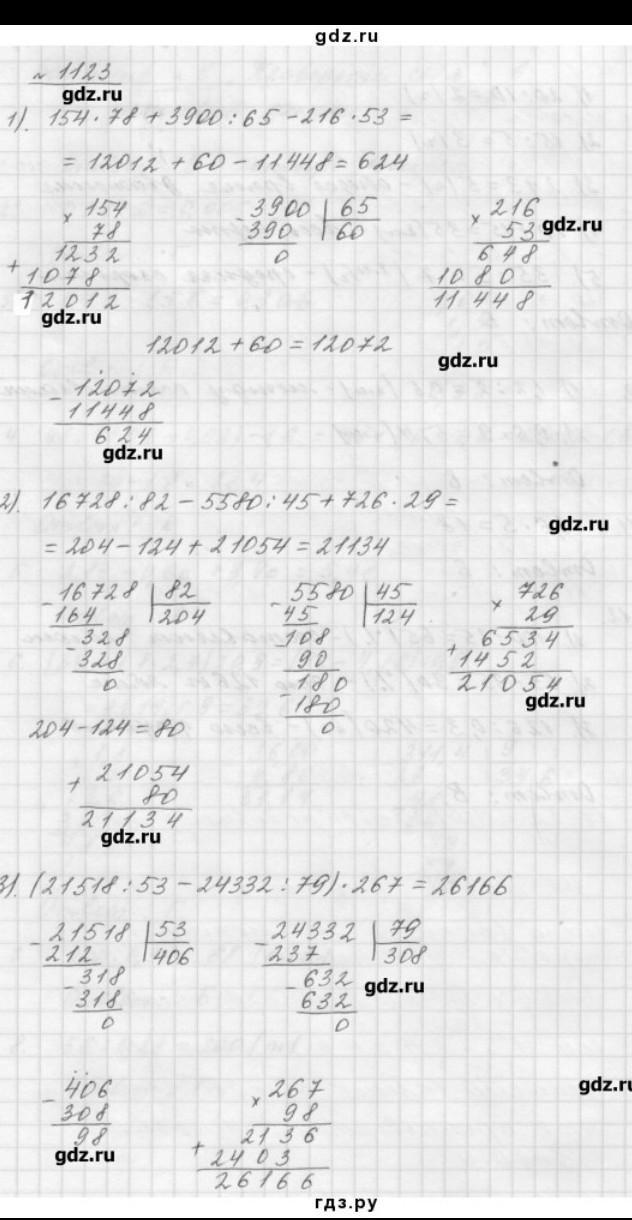 gdz.ru
№ 1123
gdz.ru
1). 154 · 78 + 3900 : 65 - 216 · 53 =
= 12012 + 60 - 11448 = 624
× 154
78
1232
+ 1078
12012
gdz.ru
- 3900 | 65
390 | 60
0
× 216
53
gdz.ru
648
1080
11448
12012 + 60 = 12072
gdz.ru
- 12072
11448
624
gdz.ru
2). 16728 : 82 - 5580 : 45 + 726 · 29 =
gdz.ru
= 204 - 124 + 21054 = 21134
- 16728 | 82
164 | 204
- 328
328
0
- 5580 | 45
45 | 124
- 108
90
- 180
180
0
× 726
29
6534
+ 1452
21054
gdz.ru
204 - 124 = 80
+ 21054
80
21134
gdz.ru
3). (21518 : 53 - 24332 : 79) · 267 = 26166
- 21518 | 53
212 | 406
- 318
318
0
- 24332 | 79
237 | 308
- 632
632
0
gdz.ru
- 406
308
98
gdz.ru
× 267
98
2136
+ 2403
26166
gdz.ru
гдз.ру